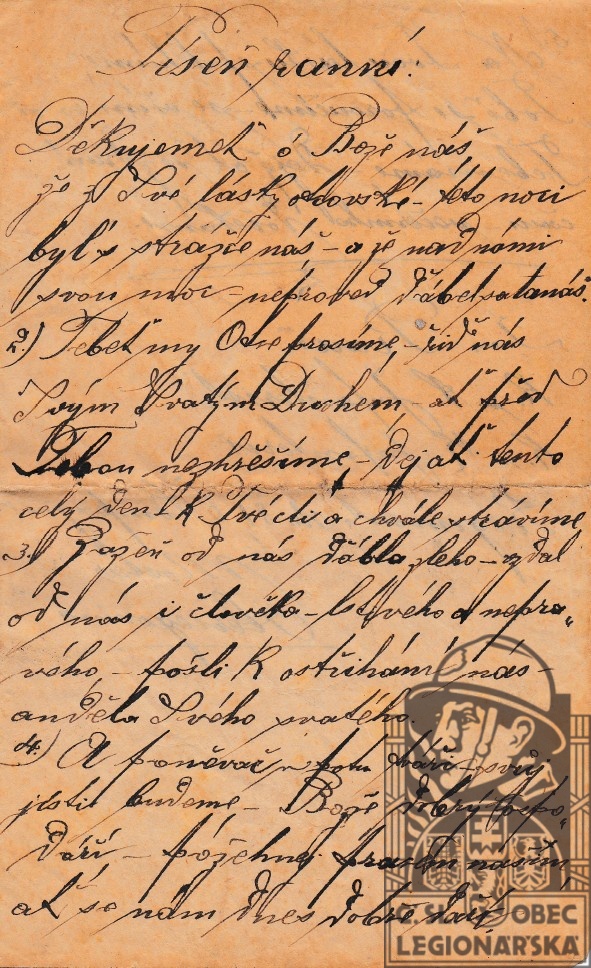 Píseň ranní.
Děkujemeť ó Bože náš
že z Své lásky otcovské – této noci
byl's strážce náš – a že nad námi
svou moc – neproveď ďábel satanáš.
2.) Tebeť my Otče prosíme, – řiď nás
Svým Svatým Duchém – ať před
Tebou nezhrěšíme – Dej ať tento
celý den – K Tvé cti a chvále strávíme
3. Zažeň od nás ďábla zleho – vzdal
od nás i člověka – lstivého a nepra„
vého – pošli K ostříhání nás –
anděla Svého svatého.
4.) A poněvač v potu tváři – svůj
jísti budeme – Bože dobrý hospo„
dáři – požehnej pracem naším
ať se nám dnes dobře daří
Č. SL. OBEC
LEGIONÁŘSKÁ